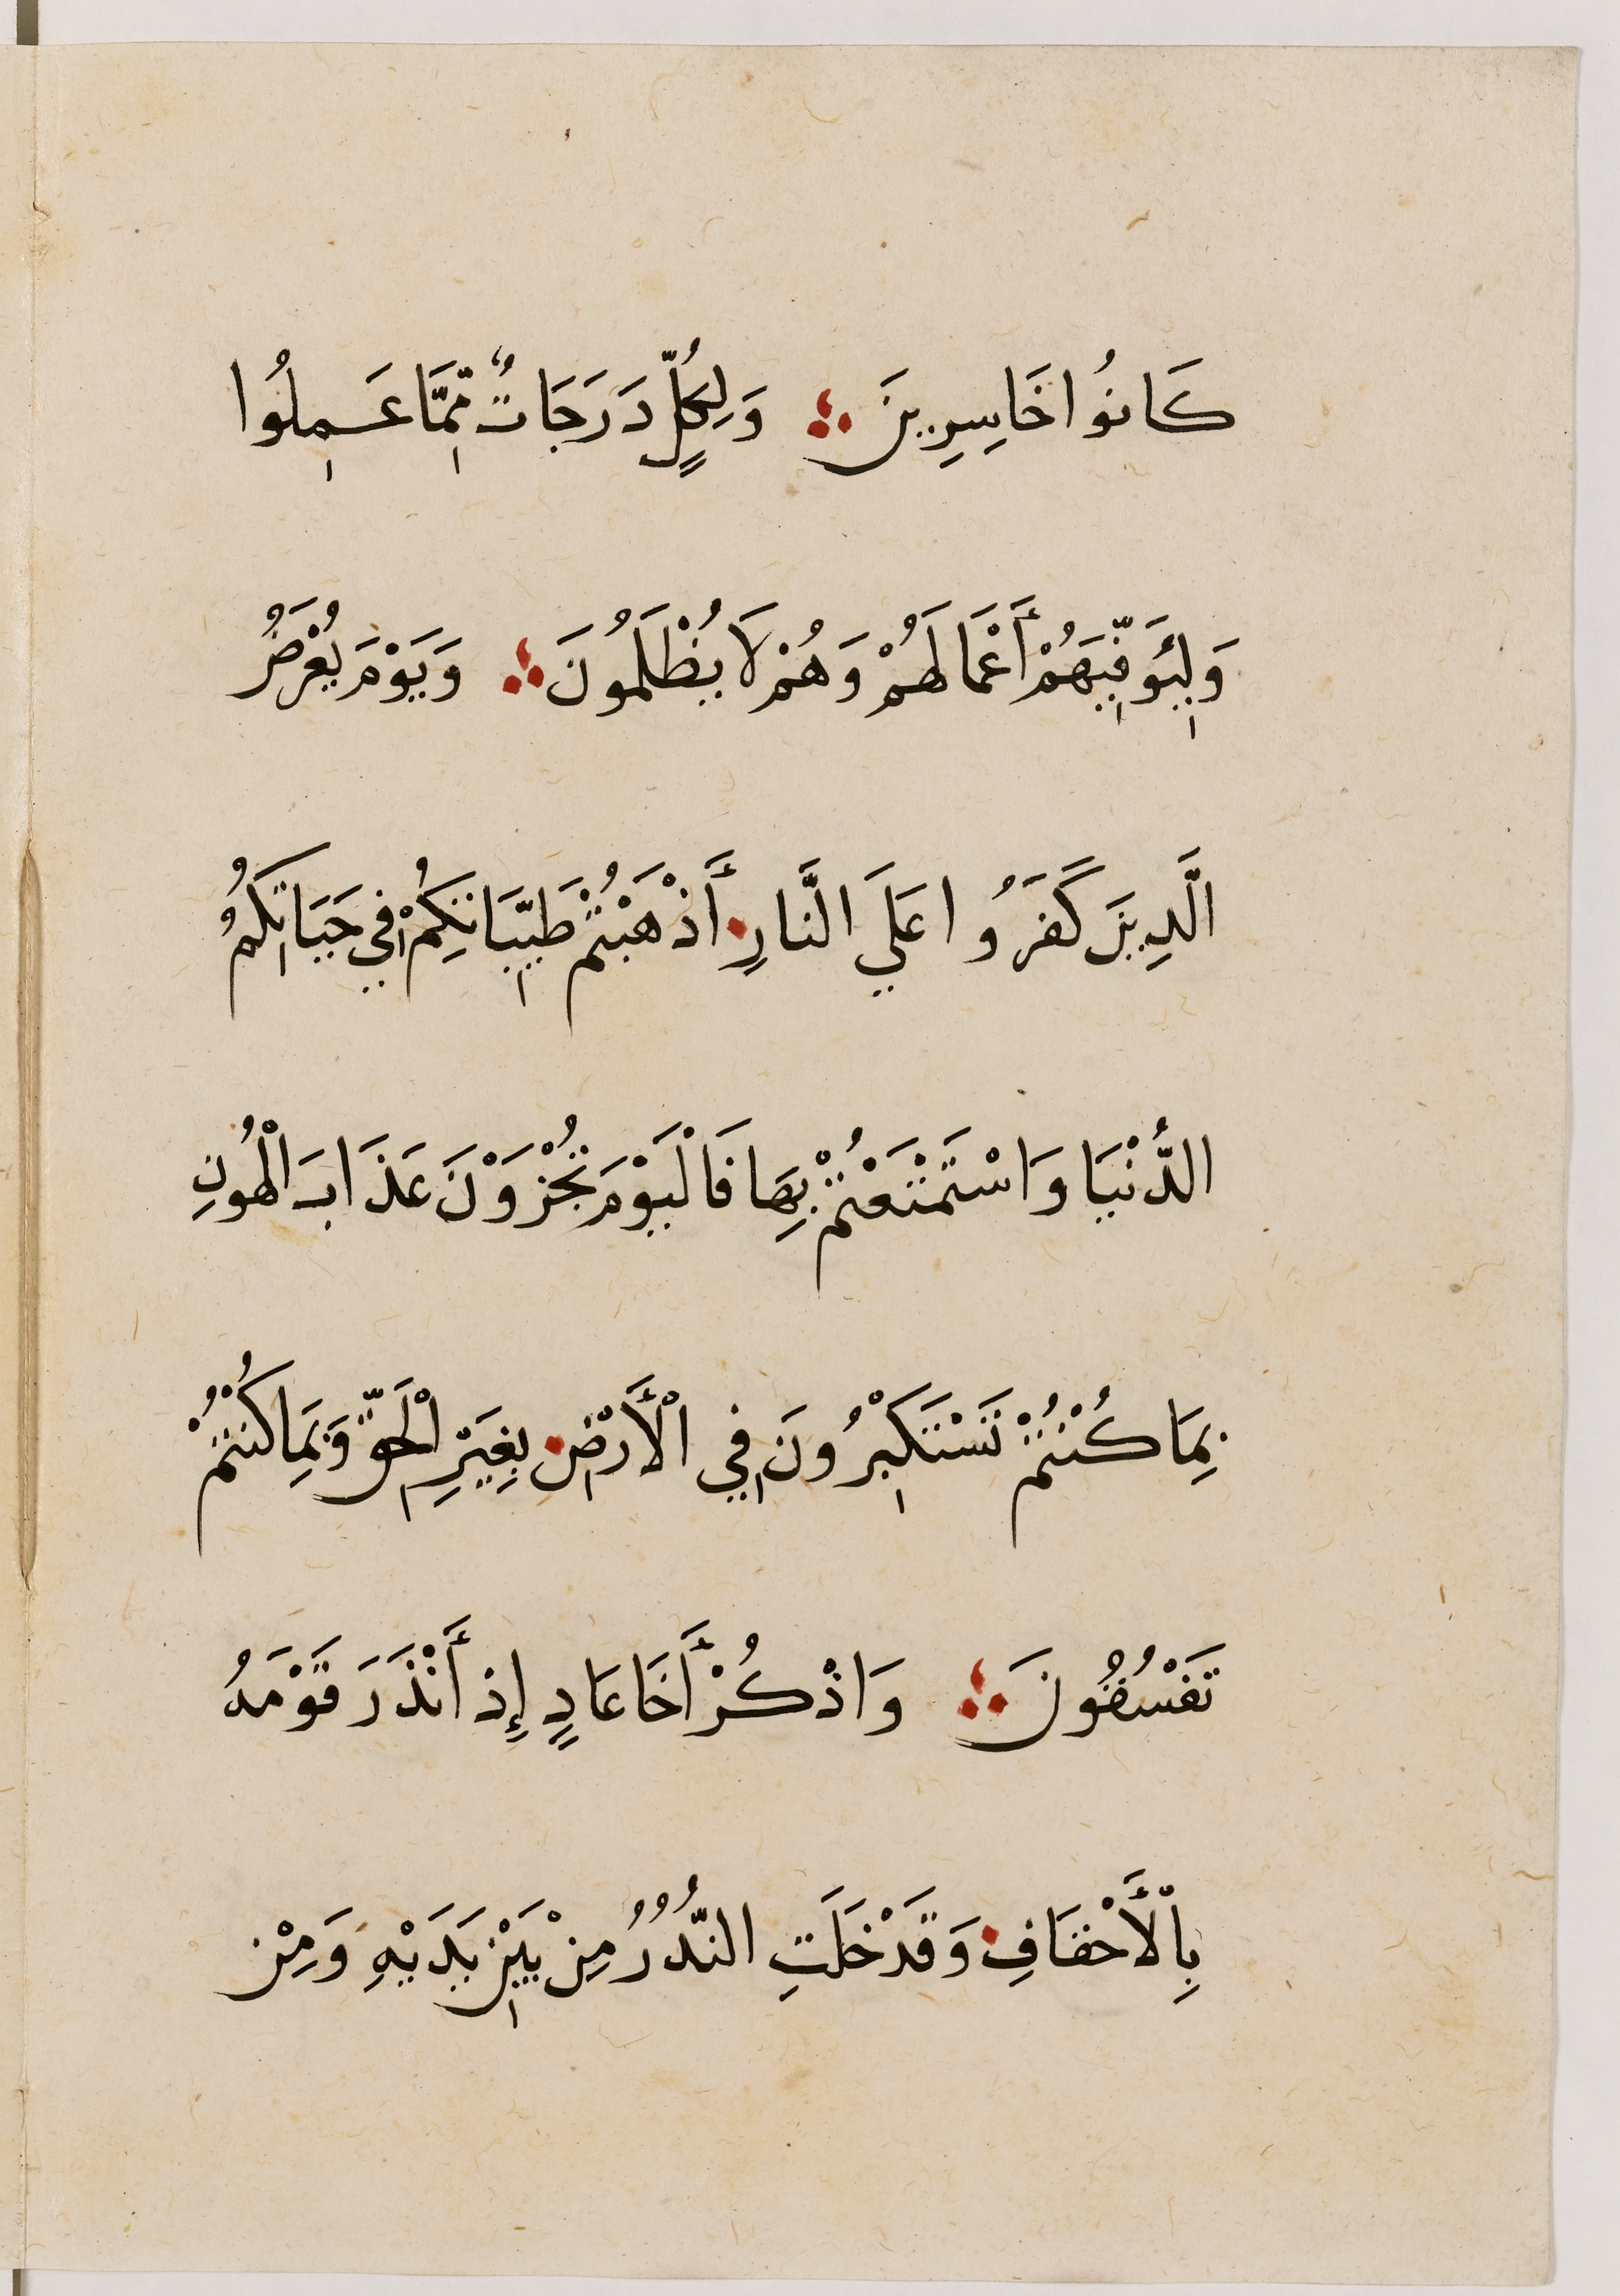 كَانُوا خَاسِرِينَ ؞ وَلِكُلٍّ دَرَجَاتٌ مِّمَّا عَمِلُوا
وَلِيُوَفِّيَهُمْ أَعْمَالَهُمْ وَهُمْ لَا يُظْلَمُونَ ؞ وَيَوْمَ يُعْرَضُ
الَّذِينَ كَفَرُوا عَلَي النَّارِ أَذْهَبْتُمْ طَيِّبَاتِكُمْ فِي حَيَاتِكُمُ
الدُّنْيَا وَاسْتَمْتَعْتُمْ بِهَا فَالْيَوْمَ تُجْزَوْنَ عَذَابَ الْهُونِ
بِمَا كُنْتُمْ تَسْتَكْبِرُونَ فِي الْأَرْضِ بِغَيْرِ الْحَقِّ وَبِمَا كُنْتُمْ
تَفْسُقُونَ ؞ وَاذْكُرْ أَخَا عَادٍ إِذْ أَنْذَرَ قَوْمَهُ
بِالْأَحْقَافِ وَقَدْ خَلَتِ النُّذُرُ مِنْ بَيْنِ يَدَيْهِ وَمِنْ